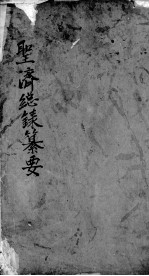 聖濟總錄纂要